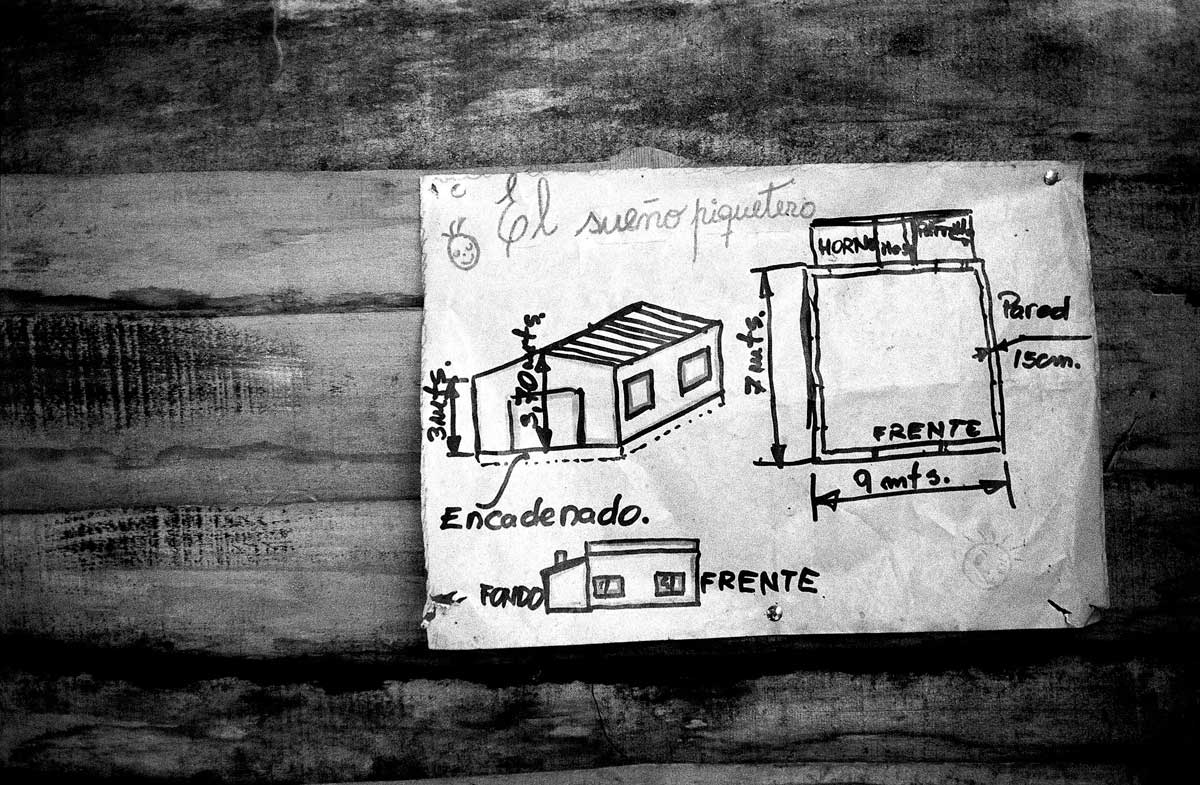 El sueño piquetero
HORNO
Parrilla
3 mts.
3,70 mts.
7 mts.
Pared
15cm.
FRENTE
9 mts.
Encadenado.
FONDO
FRENTE